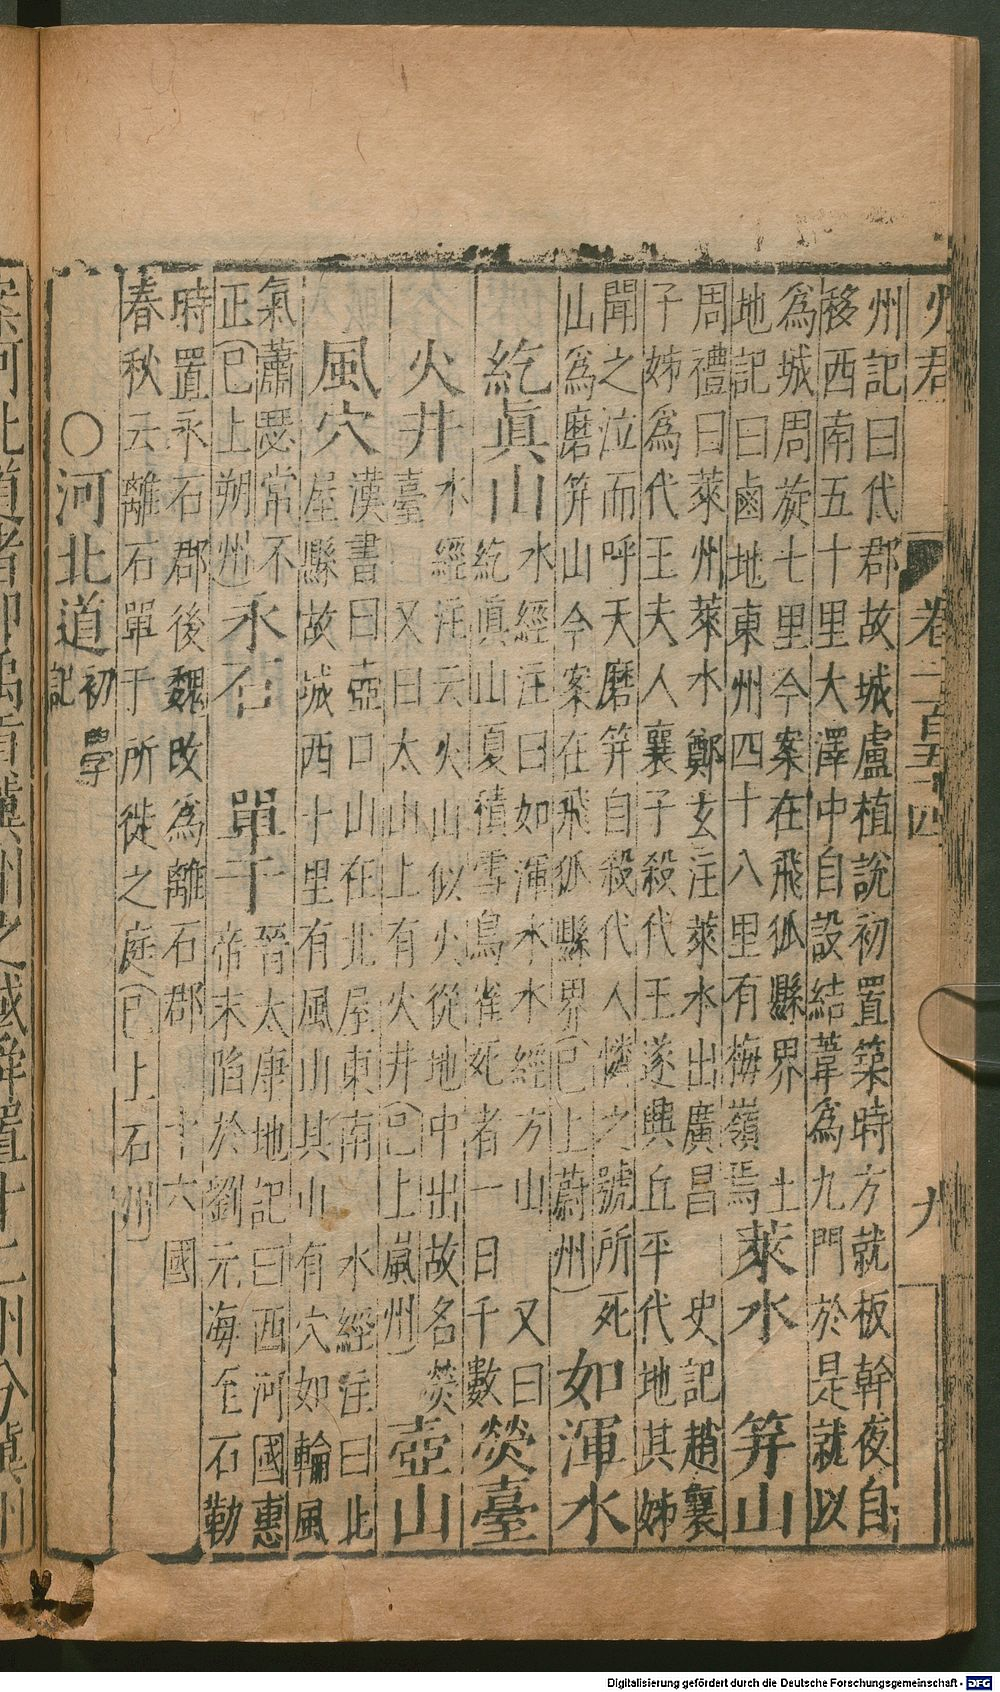 卷二百五十四
九
州記曰代郡故城盧植說初置築時方就板幹夜自
移西南五十里大澤中自設結葦爲九門於是就以
爲城周旋七里今案在飛狐縣界　土
地記曰鹵地東州四十八里有梅嶺焉　萊水　筓山
周禮曰萊州萊水鄭玄注萊水出廣昌　史記趙襄
子姊爲代王夫人襄子殺代王遂興丘平代地其姊
聞之泣而呼天磨筓自殺代人憐之號所死
山爲磨筓山今案在飛狐縣界（已上蔚州）　如渾水
紇眞山　水經注曰如渾水水經方山　又曰
紇眞山夏積雪鳥雀死者一日千數　熒臺
火井　水經注云火山似火從地中出故名熒
臺又曰太山上有火井（已上嵐州）　壺山
風穴　漢書曰壺口山在北屋東南　水經注曰北
屋縣故城西十里有風山其山有穴如輪風
氣蕭瑟常不
正（已上朔州）　永石　單于　晉太康地記曰西河國惠
帝末陷於劉元海至石勒
時置永石郡後魏改爲離石郡　十六國
春秋云離石單于所徙之庭（已上石州）
○河北道　初學
記
Digitalisierung gefördert durch die Deutsche Forschungsgemeinschaft - DFG